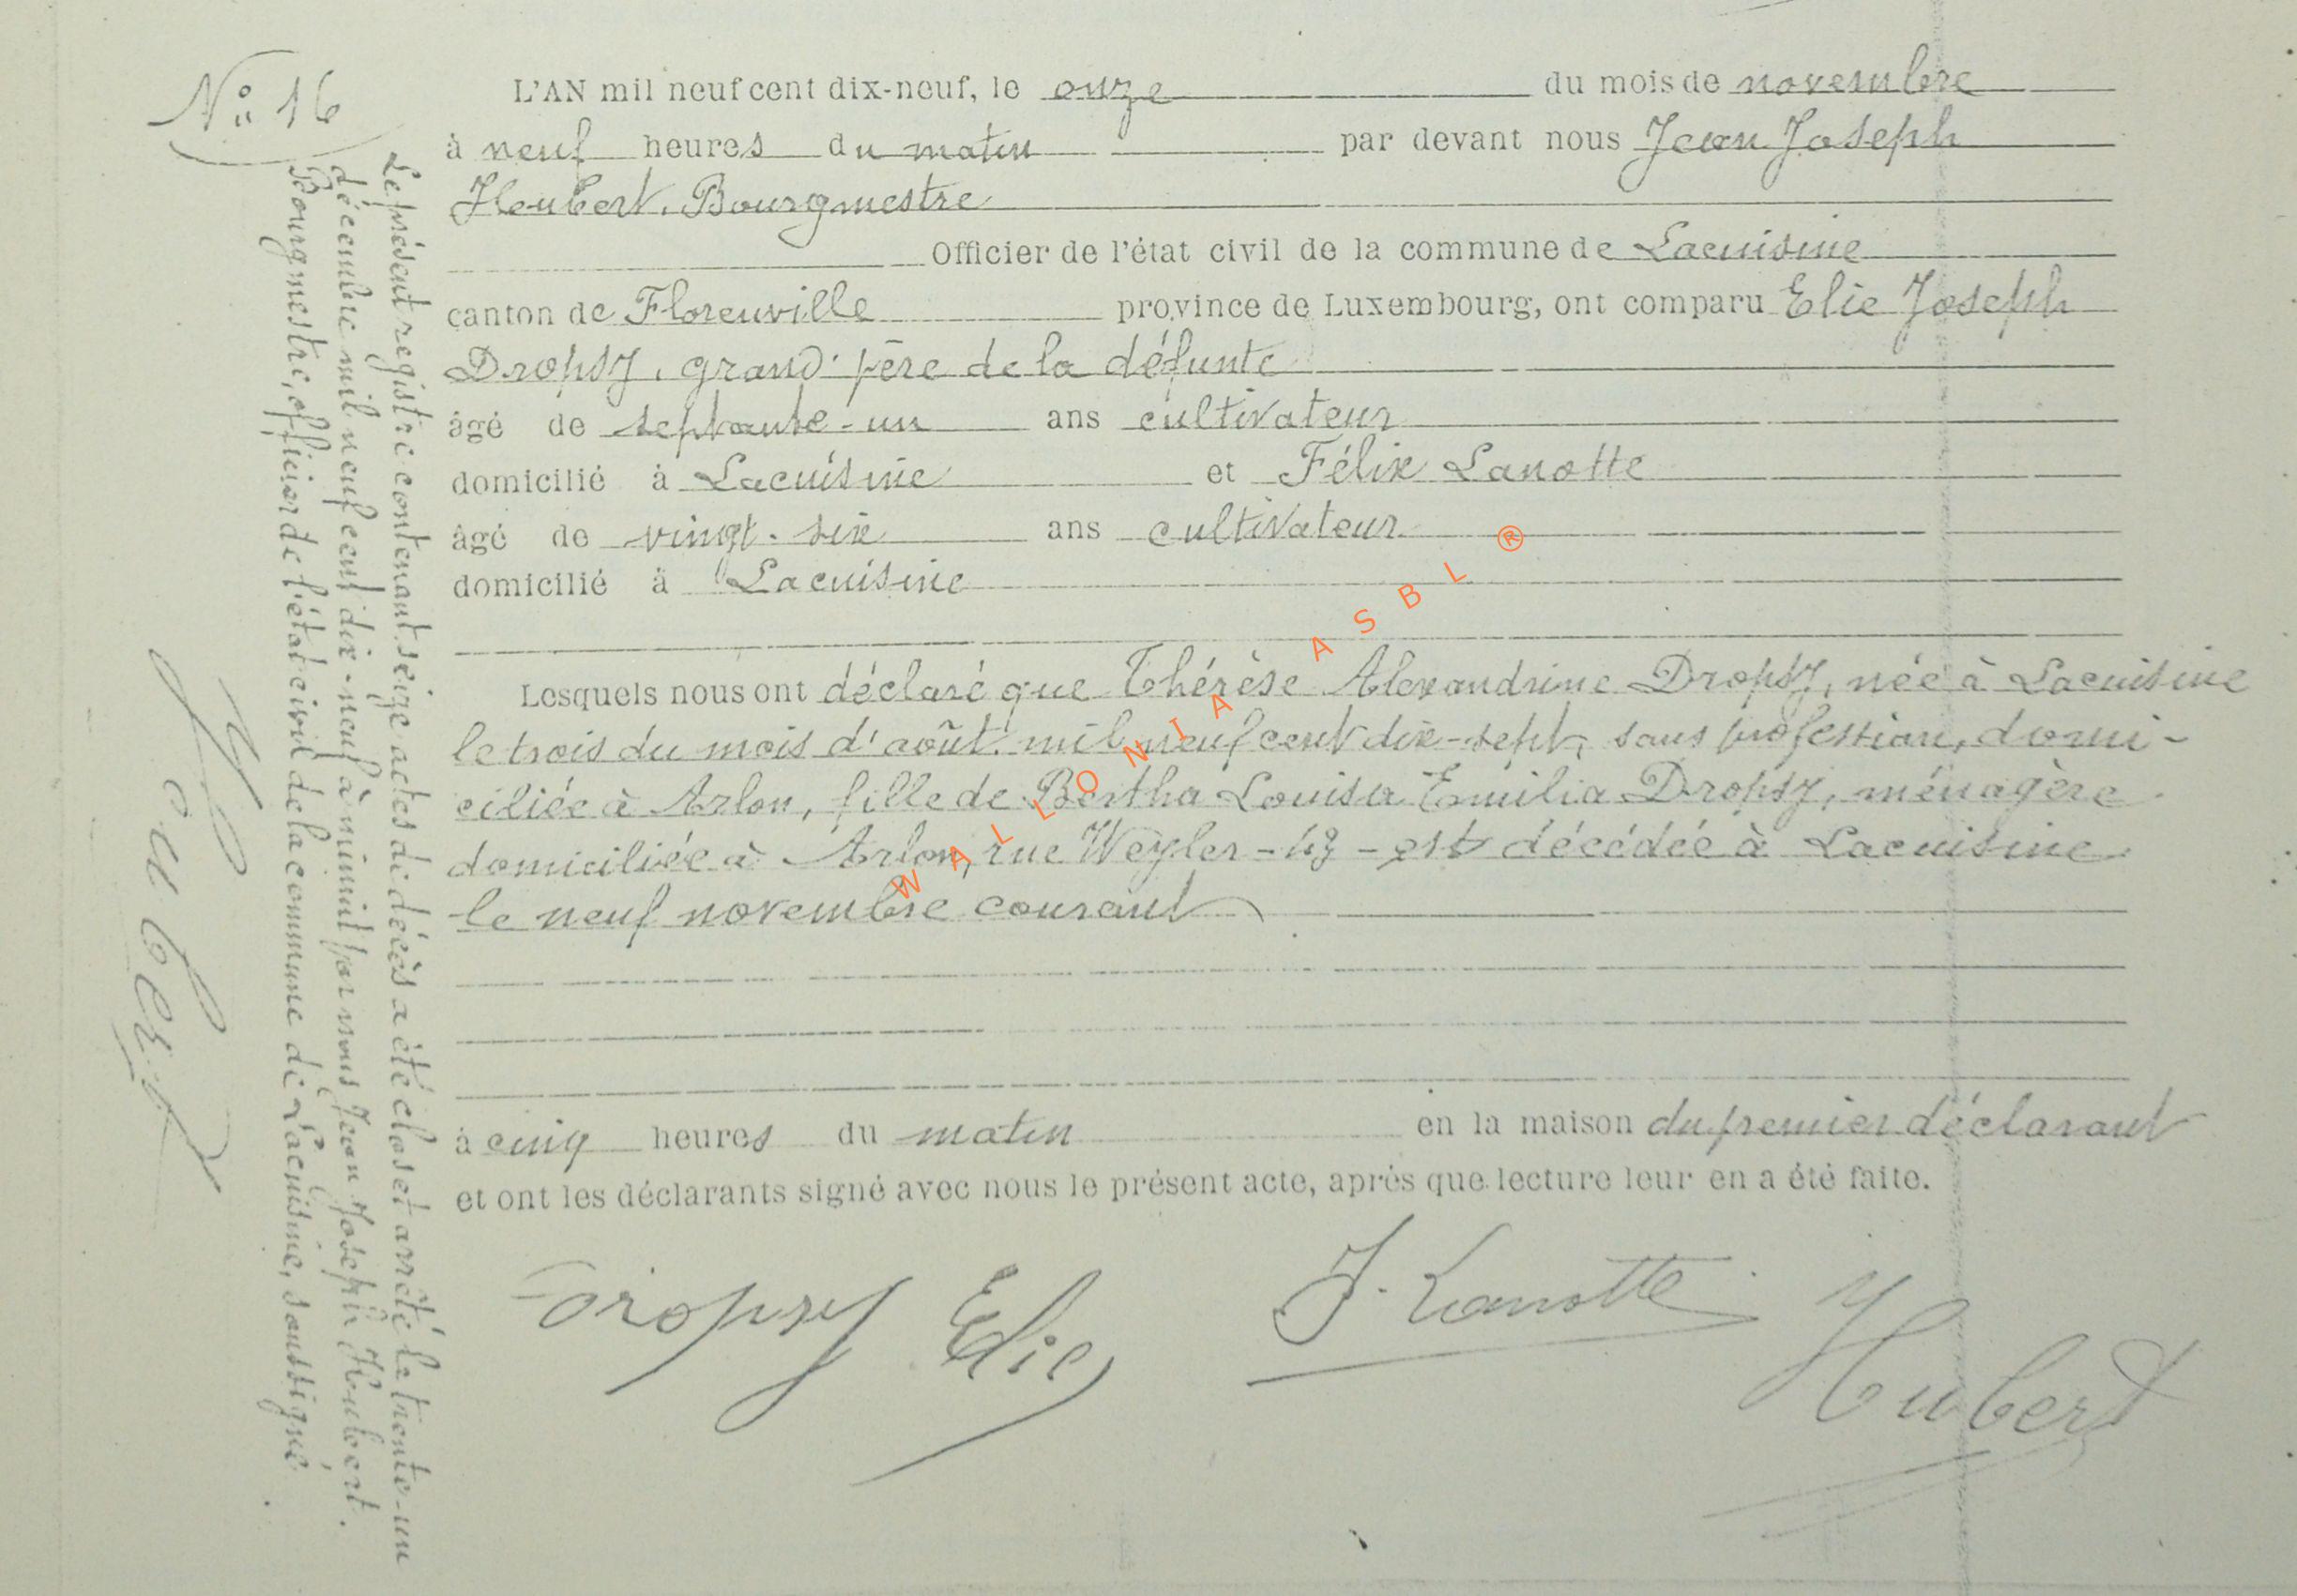 N° 16
L'AN mil neuf cent dix-neuf, le onze du mois de novembre
à neuf heures du matin par devant nous Jean Joseph
Houbert, Bourgmestre
Officier de l'état civil de la commune de Lacuisine
canton de Florenville province de Luxembourg, ont comparu Elie Joseph
Dropsy, grand-père de la défunte
âgé de septante-un ans cultivateur
domicilié à Lacuisine et Félix Lanotte
âgé de vingt-six ans cultivateur
domicilié à Lacuisine
Lesquels nous ont déclaré que Thérèse Alexandrine Dropsy, née à Lacuisine
le trois du mois d'août mil neuf cent dix-sept, sans profession, domi-
ciliée à Arlon, fille de Bertha Louisa Emilia Dropsy, ménagère
domiciliée à Arlon, rue Weyler - - est décédée à Lacuisine
le neuf novembre courant
à cinq heures du matin en la maison du premier déclarant
et ont les déclarants signé avec nous le présent acte, après que lecture leur en a été faite.
Dropsy Elie
F. Lanotte
Houbert
Le présent registre contenant seize actes de décès a été clos et arrêté le trente-un
décembre mil neuf cent dix-neuf à minuit par nous Jean Joseph Houbert,
Bourgmestre, officier de l'état civil de la commune de Lacuisine, soussigné
Houbert
WALLONIA ASBL ®